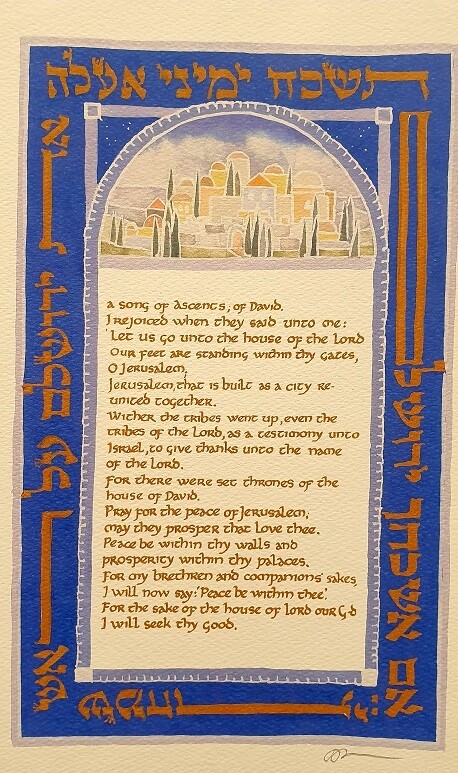 אם אשכחך ירושלם
תשכח ימיני אעלה
את ירושלם על ראש
שמחתי
a song of ascents, of David.
I rejoiced when they said unto me:
'Let us go unto the house of the Lord
Our feet are standing within thy gates,
O Jerusalem;
Jerusalem, that is built as a city re-
united together.
Wither the tribes went up, even the
tribes of the Lord, as a testimony unto
Israel, to give thanks unto the name
of the Lord.
For there were set thrones of the
house of David.
Pray for the peace of Jerusalem;
may they prosper that love thee.
Peace be within thy walls and
prosperity within thy palaces.
For my brethren and companions' sakes
I will now say: 'Peace be within thee'.
For the sake of the house of lord our G-d
I will seek thy good.